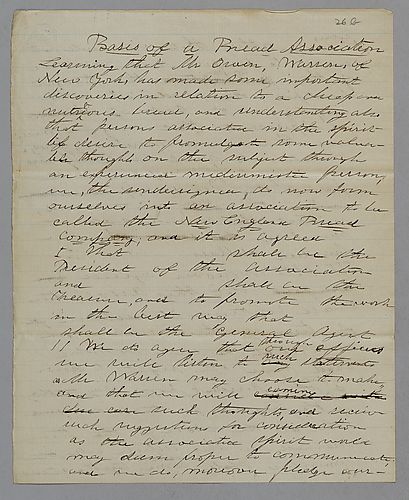 26 G
Basis of a Bread Association
Learning that Mr Owen, Warren, of
New York, has made some important
discoveries in relation to a cheap and
nutritious bread, and understanding also
that persons associated in the spirit
life desire to promulgate some valua-
ble thoughts on the subject through
an experienced mediumistic person,
we, the undersigned, do now form
ourselves into an association to be
called the New England Bread
Company, and it is agreed
I That shall be the
President of the association
and shall be the
Treasurer, and to promote the work
in the best way that
shall be the General Agent
II We do agree that through our officers
we will listen to such statements
as Mr Warren may choose to make
and that we will
such thoughts, and receive
such suggestions for consideration
as the associated spirit world
may deem proper to communicate,
and we do, moreover pledge our-